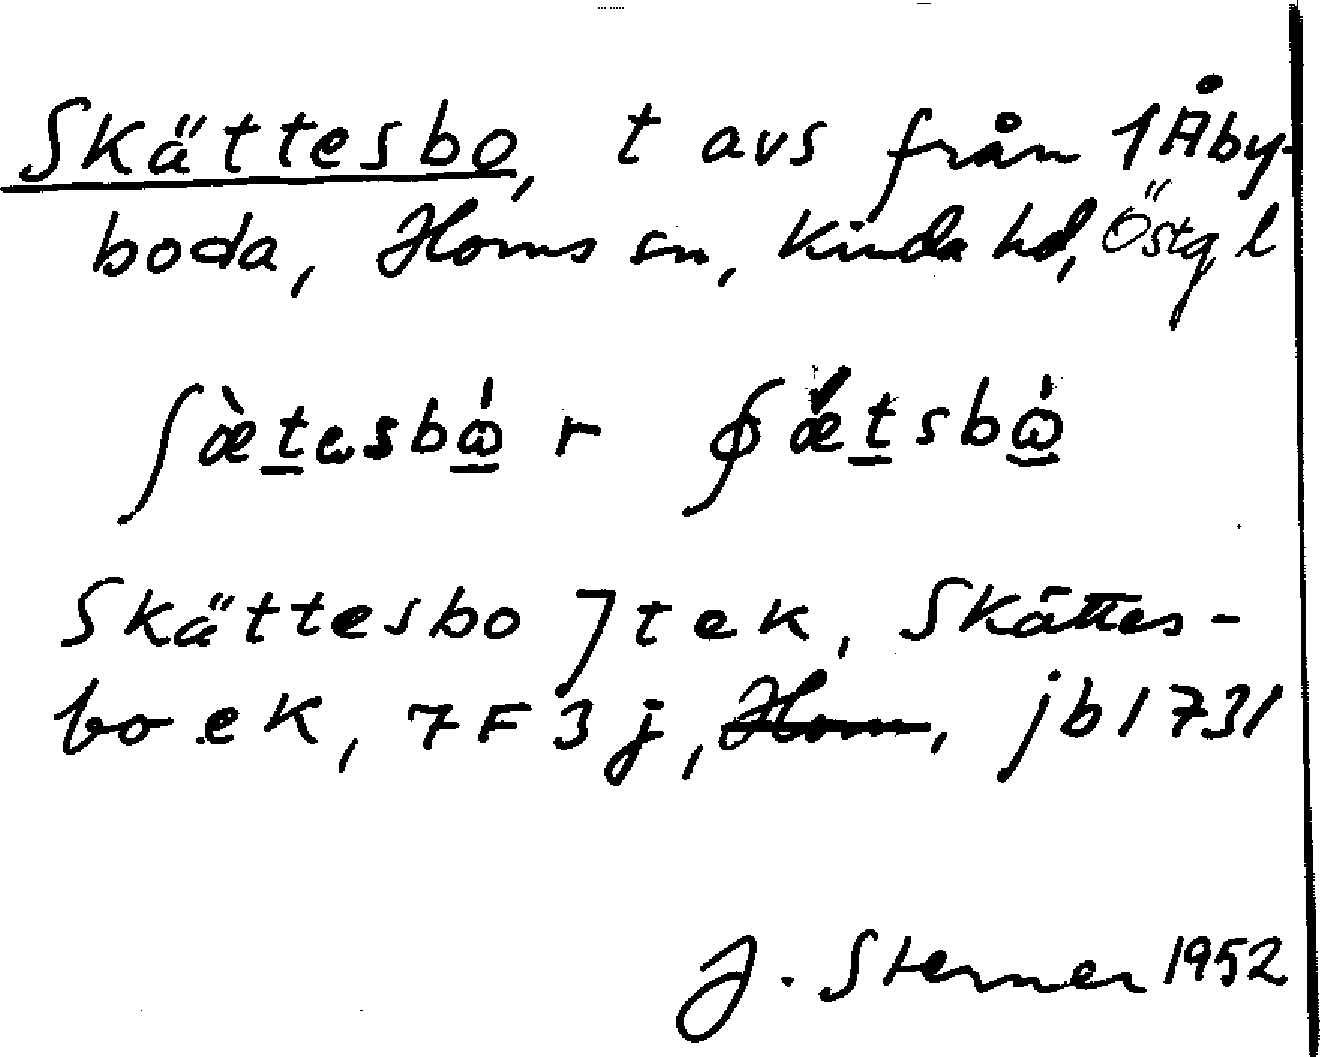 Skättesbo, t avs från 1 Åby-
boda, Horns sn, Kinda hd, Östg l
ʃæ̀tesbω̇ r ʃǽtsbω̇
Skättesbo ] t ek, Skättes-
bo ek, 7F3j, Horn, jb 1731
J. Sterner 1952